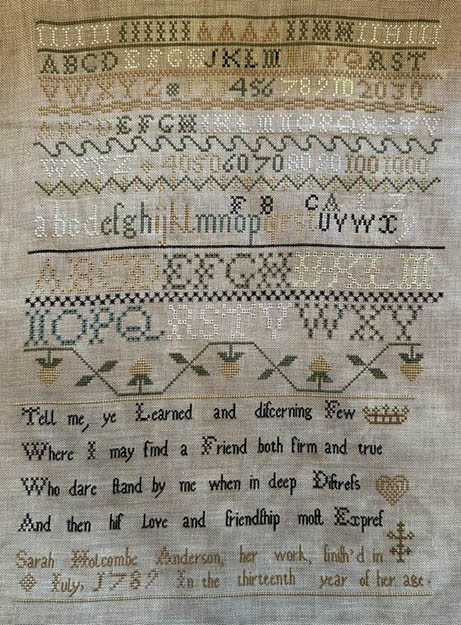 ABCDEFGHJKLMNOPQRST
VWXYZ 456 78910 2030
ABCDEFGHIKLMNOPQRSTV
WXYZ 4050607080901001000
F 8 C A L Z
abcdefghijklmnopqrst UVWXy
ABCDEFGHIKLM
NOPQRSTVWXY
Tell me, ye Learned and diſcerning Few
Where I may find a Friend both firm and true
Who dare ſtand by me when in deep Diſtreſs
And then hiſ Love and friendſhip moſt Expreſ
Sarah Holcombe Anderson, her work, finiſh'd in
July, 1789 In the thirteenth year of her age.